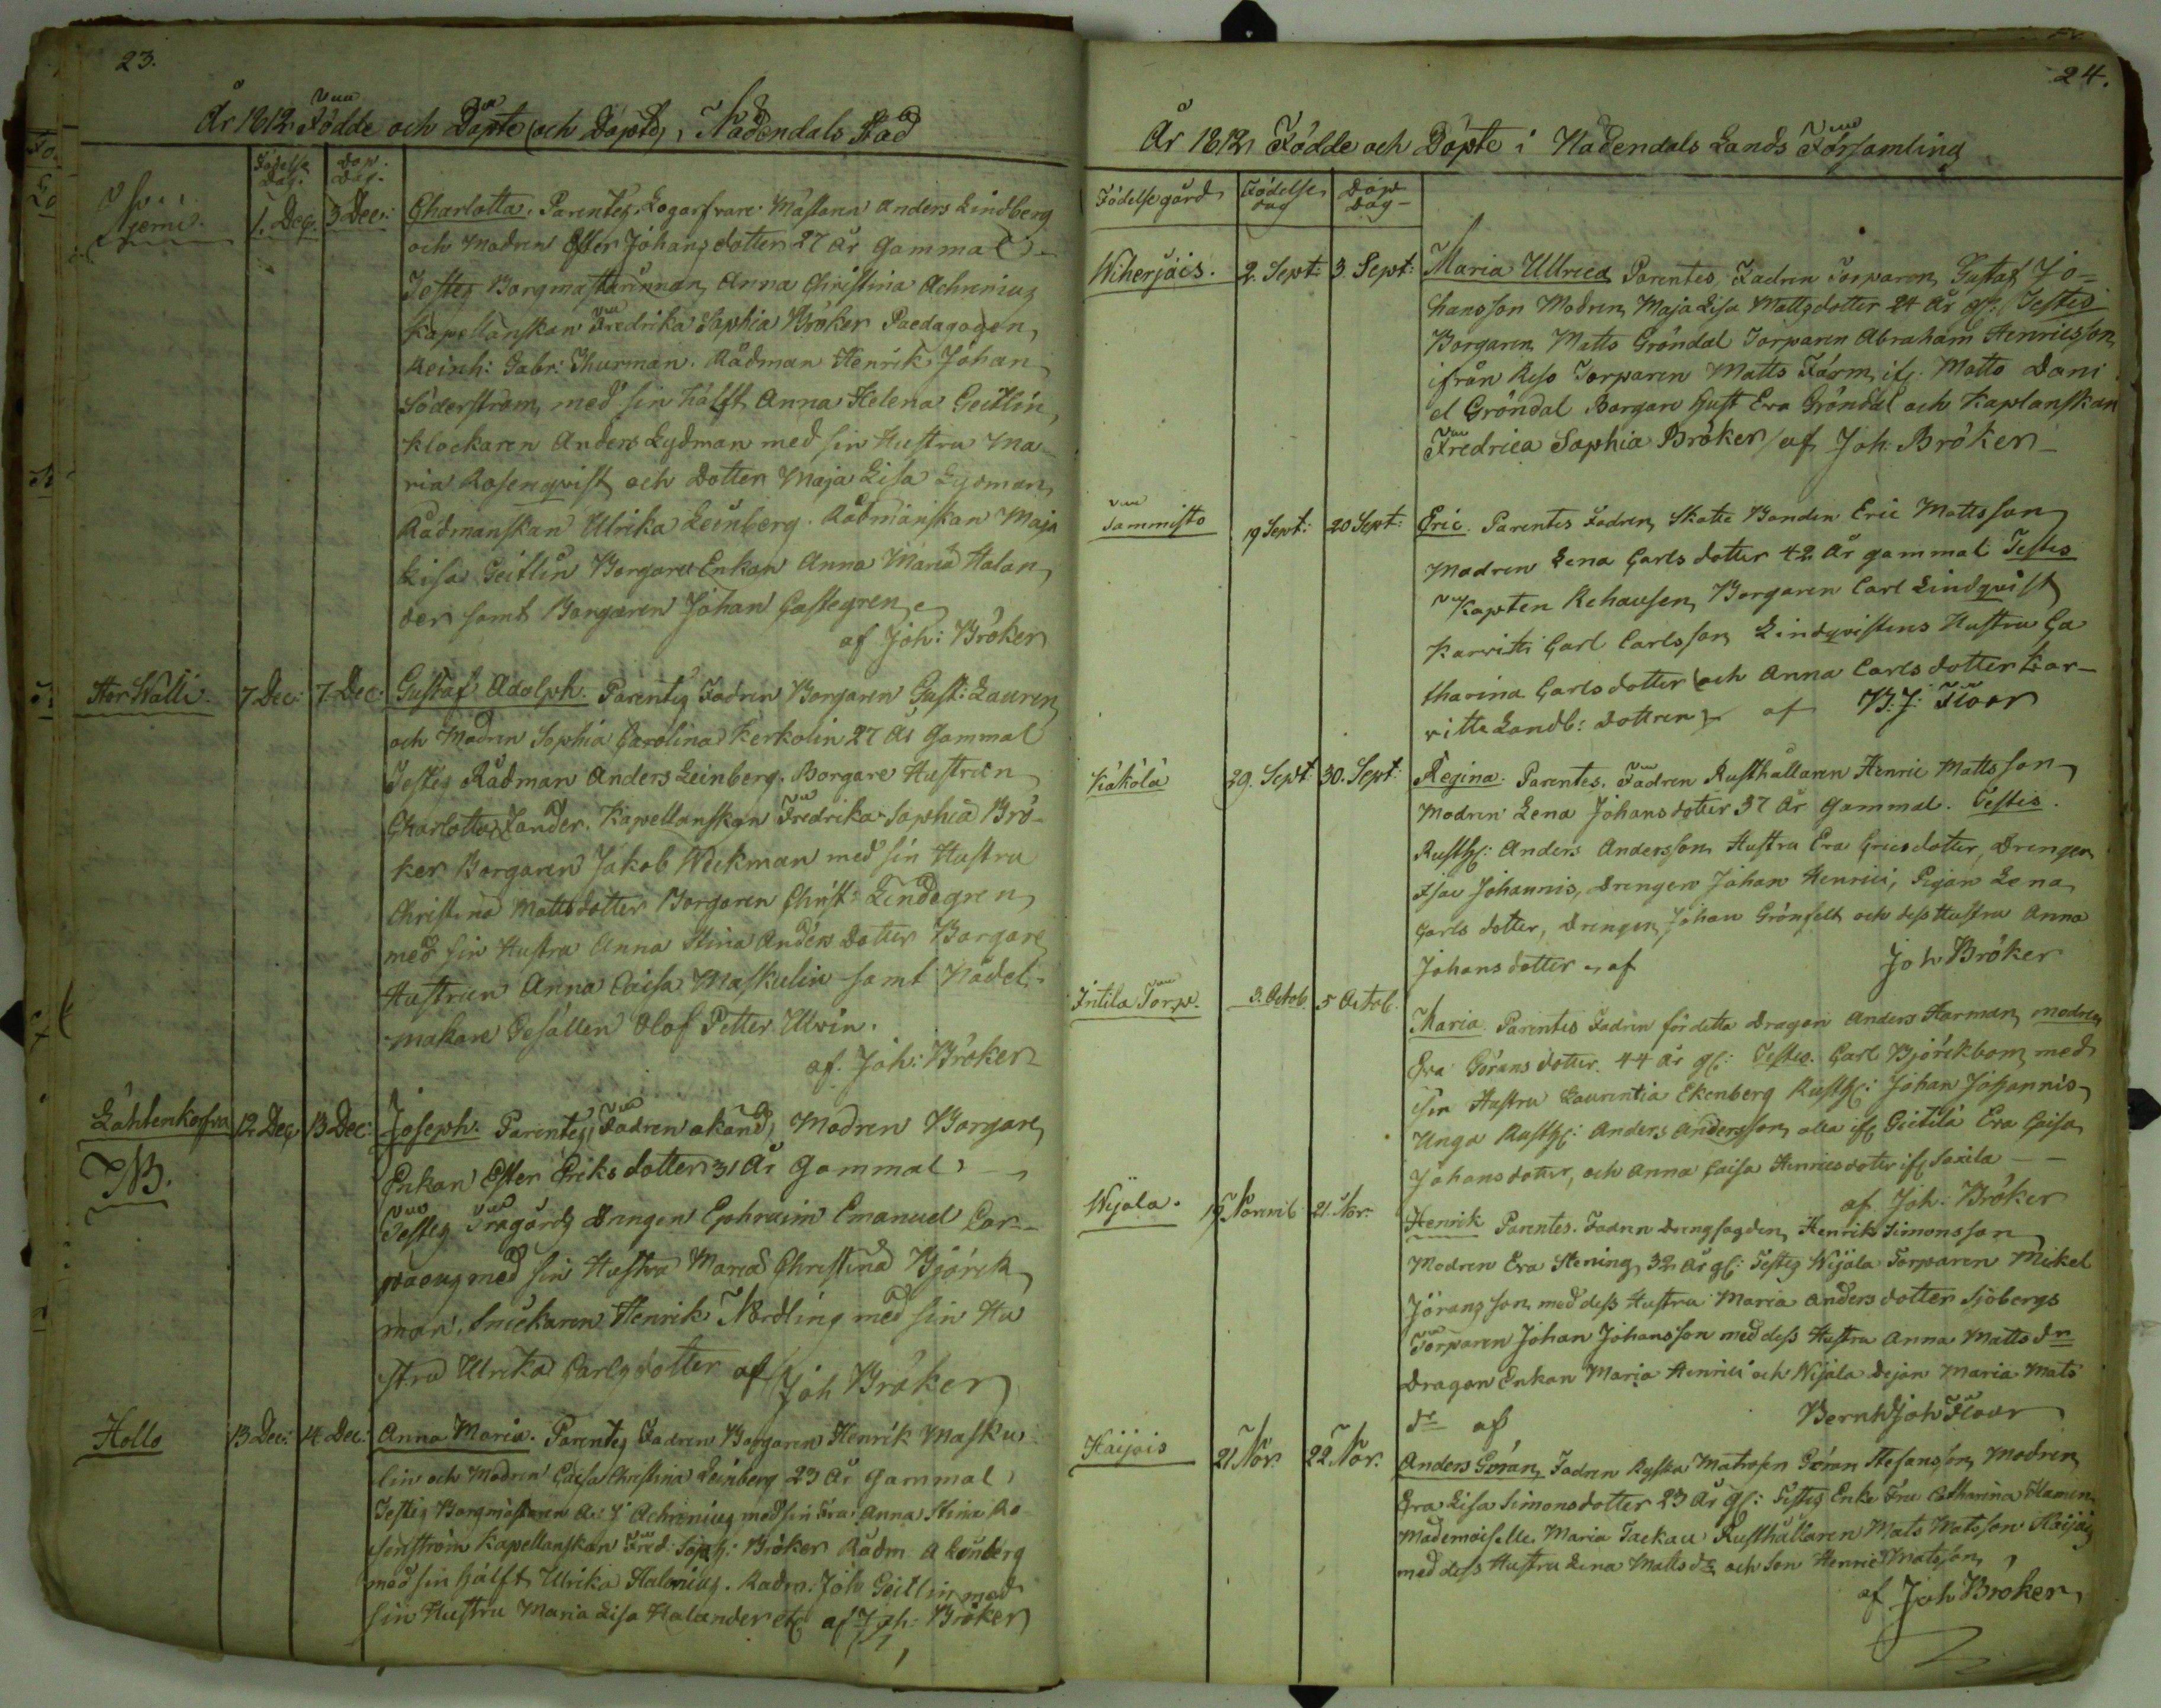 23.
År 1812 Födde och Döpte (och Döpte) i Nådendals Stad
Födelse Dag. Dop Dag.
Njemi. 1. Dec. 3 Dec: Charlotta. Parentes Logarfvare Mästaren Anders Lindberg
och Modren Ester Johans dotter 27 År gammal
Testes Borgmästarinnan Anna Christina Achrenius
Kapellanskan Fredrika Sophia Bröker Paedagogen
Reinh: Gabr: Thurman. Rådman Henrik Johan
Söderström, med sin hälft Anna Helena Geitlin,
Klockaren Anders Lydman med sin Hustru Ma-
ria Rosenqvist och Dotter Maja Lisa Lydman
Rådmanskan Ulrika Leinberg. Rådmanskan Maja
Lisa Geitlin Borgare Enkan Anna Maria Halan
der samt Borgaren Johan Castegren
af Joh: Bröker
Stor Wälli. 7 Dec: 7. Dec: Gustaf Adolph. Parentes Fadren Borgaren Gust: Lauren
och Modren Sophia Carolina Kerkolin 27 År Gammal
Testes Rådman Anders Leinberg. Borgare Hustrun
Charlotta Zander. Kapellanskan Fredrika Sophia Brö-
ker Borgaren Jakob Weckman med sin Hustru
Christina Mattsdotter Borgaren Christ: Lindegren
med sin Hustru Anna Stina Anders Dotter Borgare
Hustrun Anna Caisa Maskulin samt Nådel-
makare Gesällen Olof Petter Ulvin.
af. Joh: Bröker
Lähtenkorfva 12 Dec 13 Dec: Joseph. Parentes, Fadren okänd, Modren Borgare
NB.
Enkan Ester Eriks dotter 31 År Gammal
Testes Trägårds Drengen Ephraim Emanuel Cor-
paeus med sin Hustru Maria Christina Björck
man, Snickaren Henrik Nordling med sin Hu
stru Ulrika Carlsdotter af Joh Bröker
Hollo 13 Dec: 14 Dec: Anna Maria. Parentes Fadren Borgaren Henrik Masku
lin och Modren Caisa Christina Leinberg 23 År Gammal
Testes Borgmästaren A: J: Achrenius med sin Fru Anna Stina Ro
senström Kapellanskan Fred: Soph: Bröker Rådm A Leinberg
med sin hälft Ulrika Halenius. Radm. Joh Geitlin med
sin Hustru Maria Lisa Halander etc af Joh: Bröker
24.
År 1812 Födde och Döpte i Nådendals Lands Församling
Födelsegård Födelse dag Döp Dag
Wiherjäis. 2. Sept: 3. Sept: Maria Ullrica Parentes Fadren Torparen Gustaf Jo-
hansson Modren Maja Lisa Mattsdotter 24 År gl: Testes
Borgaren Matts Gröndal Torparen Abraham Henricsson
ifrån Reso Torparen Matts Färm, if. Matts Dani
el Gröndal Borgare Hust Eva Gröndal och Kaplanskan
Fredrica Sophia Bröker / af Joh. Bröker
Tammisto 19 Sept: 20 Sept: Eric. Parentes Fadren Skatte Bonden Eric Mattsson
Modren Lena Carls dotter 42 År gammal Testes
Kapten Rehausen, Borgaren Carl Lindqvist
Karvitti Carl Carlsson Lindqvistens Hustru Ca
tharina Carlsdotter och Anna Carls dotter Kar-
vitte Landb: Dottren af B: J: Floor
Käkölä 29. Sept 30. Sept: Regina. Parentes. Fadren Rusthållaren Henric Mattsson
Modren Lena Johansdotter 37 År Gammal. Testis.
Rusth: Anders Andersson Hustru Eva Ericsdotter, Drengen
Isac Johannis, Drengen Johan Henrici, Pigan Lena
Carls dotter, Drengen Johan Grönfelt och dess Hustru Anna
Johansdotter af Joh Bröker
Intila Torp. 3. Octob. 5 Octob. Maria. Parentes Fadren för detta Dragon Anders Harman, modren
Eva Görans dotter. 44 år gl: Testes. Carl Björckbom med
sin Hustru Laurentia Ekenberg Rusth: Johan Johannis
Unga Rusth: Anders Andersson, alla ifr Gietilä Eva Caisa
Johansdotter, och Anna Caisa Henricsdoter ifr Saxila
af Joh: Bröker
Wijala. 19 Novemb: 21. Nov. Henrik Parentes. Fadren Drengsagden, Henrik Simonsson
Modren Eva Stening, 32 år gl: Testes Wijala Torparen Mikel
Jöransson, med dess Hustru Maria Anders dotter Sjöbergs
Torparen Johan Johansson med dess Hustru Anna Matts dr
Dragon Enkan Maria Henrici och Wijala Dejan Maria Mats
dr af Bernh Joh Floor
Haijais 21 Nov. 22 Nov. Anders Göran, Fadren Ryska Matrosen Göran Stefansson, Modren
Eva Lisa Simonsdotter 23 År gl: Testes Enke Fru Catharina Flamen
Mademoiselle Maria Tackau Rusthållaren Mats Matsson Haijais
med dess Hustru Lena Matts dr och Son Henric Matsson
af Joh Bröker